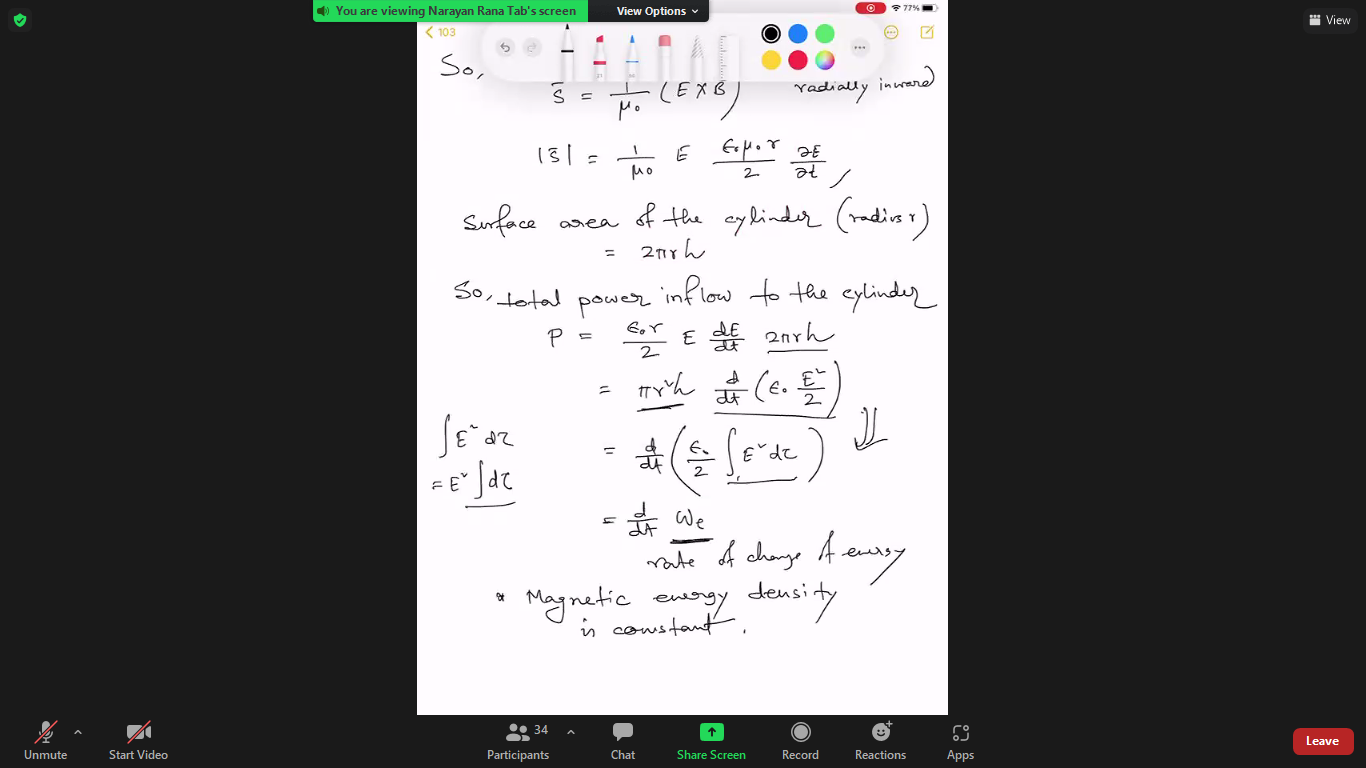 You are viewing Narayan Rana Tab's screen
View Options
77%
View
103
So,
S̄ = 1/μ₀ (E × B) radially inward)
|S̄| = 1/μ₀ E ε₀μ₀r/2 ∂E/∂t
Surface area of the cylinder (radius r)
= 2πrh
So, total power inflow to the cylinder
P = ε₀r/2 E dE/dt 2πrh
= πr²h d/dt (ε₀ E²/2)
∫E² dτ
= E² ∫dτ
= d/dt (ε₀/2 ∫E² dτ)
= d/dt We
rate of change of energy
* Magnetic energy density
is constant.
Unmute
Start Video
Participants
34
Chat
Share Screen
Record
Reactions
Apps
Leave